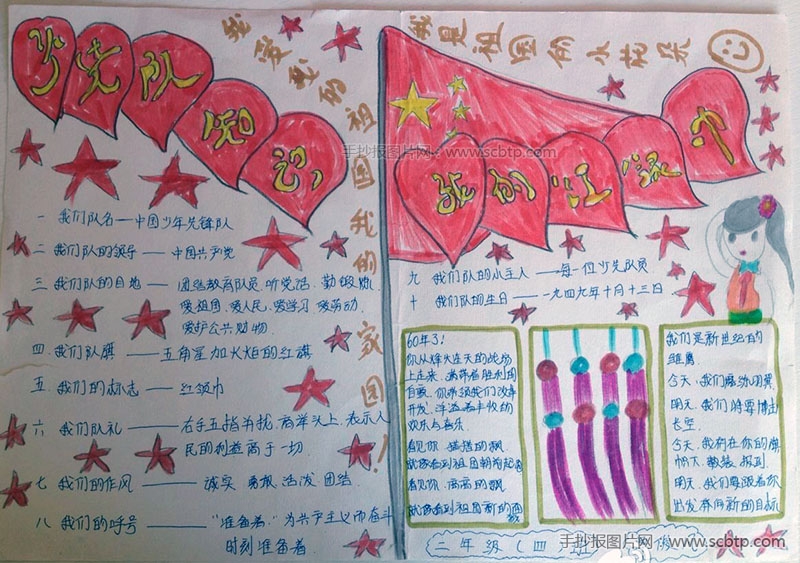 少先队知识
我爱我的祖国 我的家园！
我是祖国的小花朵
手抄报图片网 www.scbtp.com
一 我们队名——中国少年先锋队
二 我们队的领导——中国共产党
三 我们队的目地——团结教育队员,听党话,勤锻炼,
爱祖国、爱人民、爱学习、爱劳动、
爱护公共财物
四 我们队旗——五角星加火炬的红旗
五 我们的标志——红领巾
六 我们队礼——右手五指并拢,高举头上,表示人
民的利益高于一切
七 我们的作风——诚实 勇敢 活泼 团结
八 我们的呼号——"准备着,为共产主义而奋斗
时刻准备着
九 我们队的小主人——每一位少先队员
十 我们队的生日——一九四九年十月十三日
60年了!
你从烽火连天的战场
上走来,
欢乐与喜乐
看见你
看见你
我们是新世纪的
雏鹰
今天,我们展翅翱翔
明天,我们将要搏击
长空
今天,我们在你的旗
帜下
明天,我们要跟着你
出发奔向新的目标
二年级(四)班
手抄报图片网
www.scbtp.com